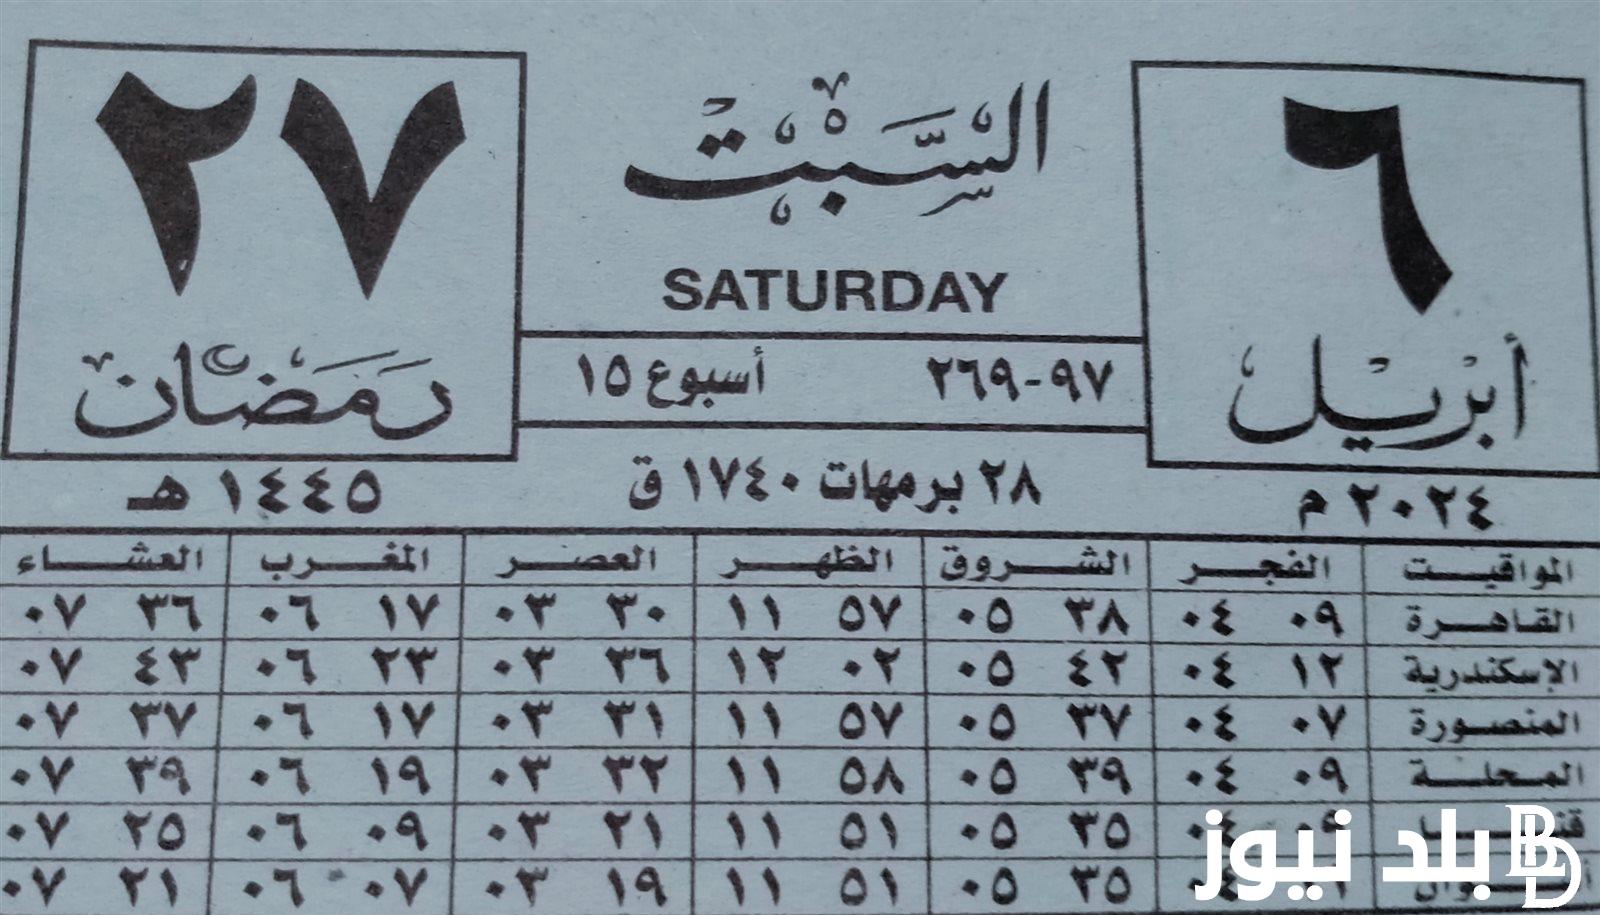 ٦
أبريل
٢٠٢٤ م
السَّبْت
SATURDAY
٩٧-٢٦٩ أسبوع ١٥
٢٨ برمهات ١٧٤٠ ق
٢٧
رمضان
١٤٤٥ هـ
المواقيت الفجر الشروق الظهر العصر المغرب العشاء
القاهرة ٠٩ ٠٤ ٣٨ ٠٥ ٥٧ ١١ ٣٠ ٠٣ ١٧ ٠٦ ٣٦ ٠٧
الإسكندرية ١٢ ٠٤ ٤٢ ٠٥ ٠٢ ١٢ ٣٦ ٠٣ ٢٣ ٠٦ ٤٣ ٠٧
المنصورة ٠٧ ٠٤ ٣٧ ٠٥ ٥٧ ١١ ٣١ ٠٣ ١٧ ٠٦ ٣٧ ٠٧
المحلة ٠٩ ٠٤ ٣٩ ٠٥ ٥٨ ١١ ٣٢ ٠٣ ١٩ ٠٦ ٣٩ ٠٧
٣٥ ٠٥ ٥١ ١١ ٢١ ٠٣ ٠٩ ٠٦ ٢٥ ٠٧
٣٥ ٠٥ ٥١ ١١ ١٩ ٠٣ ٠٧ ٠٦ ٢١ ٠٧
بلد نيوز